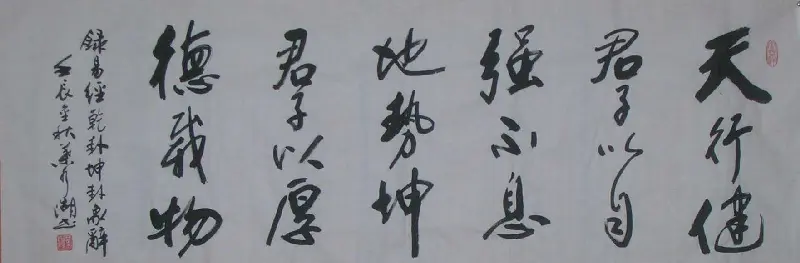 天行健
君子以自
强不息
地勢坤
君子以厚
德載物
錄易經乾卦坤卦象辭
壬辰金秋